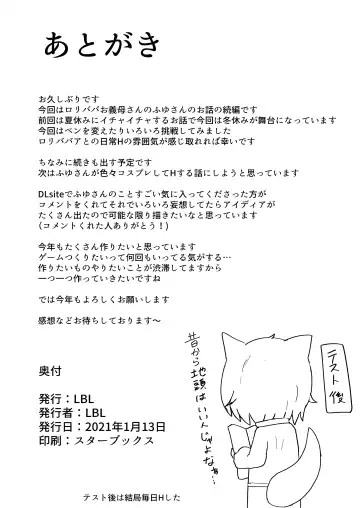 あとがき
お久しぶりです
今回はロリババお義母さんのふゆさんのお話の続編です
前回は夏休みにイチャイチャするお話で今回は冬休みが舞台になっています
今回はペンを変えたりいろいろ挑戦してみました
ロリババアとの日常Hの雰囲気が感じ取れれば幸いです
ちなみに続きも出す予定です
次はふゆさんが色々コスプレしてHする話にしようと思っています
DLsiteでふゆさんのことすごい気に入ってくださった方が
コメントをくれてそれでいろいろ妄想してたらアイディアが
たくさん出たので可能な限り描きたいなと思っています
(コメントくれた人ありがとう!)
今年もたくさん作りたいと思っています
ゲームつくりたいって何回もいってる気がする…
作りたいものやりたいことが渋滞してますから
一つ一つ作っていきたいですね
では今年もよろしくお願いします
感想などお待ちしております～
テスト後
昔から地頭はいい人じゃよなぁ…
奥付
発行：LBL
発行者：LBL
発行日：2021年1月13日
印刷：スターブックス
テスト後は結局毎日Hした